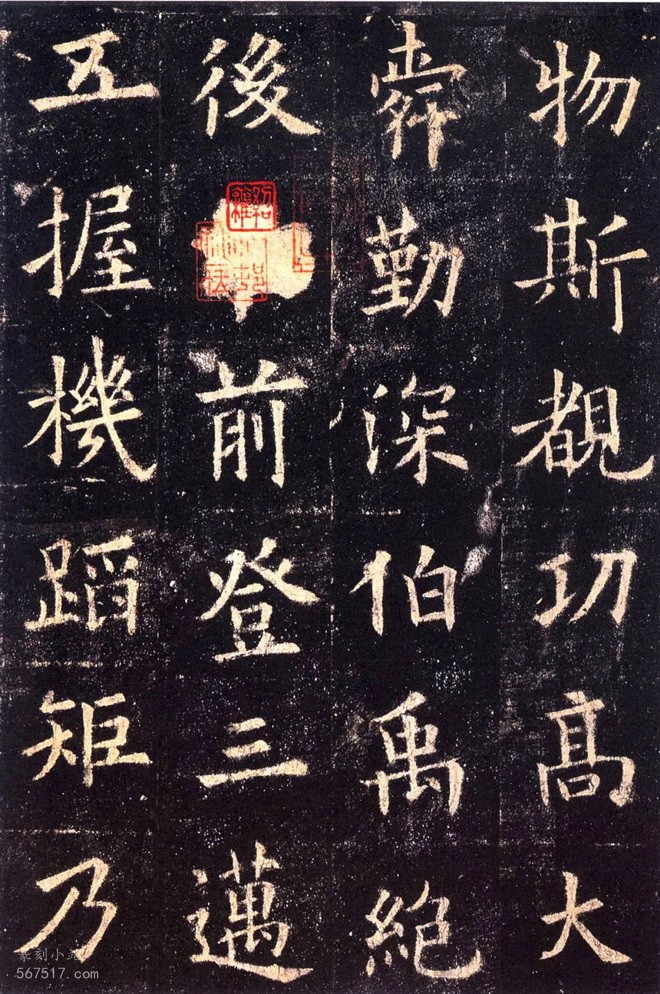 物斯覩功高大
舜勤深伯禹絶
後前登三邁
五握機蹈矩乃
567517.com